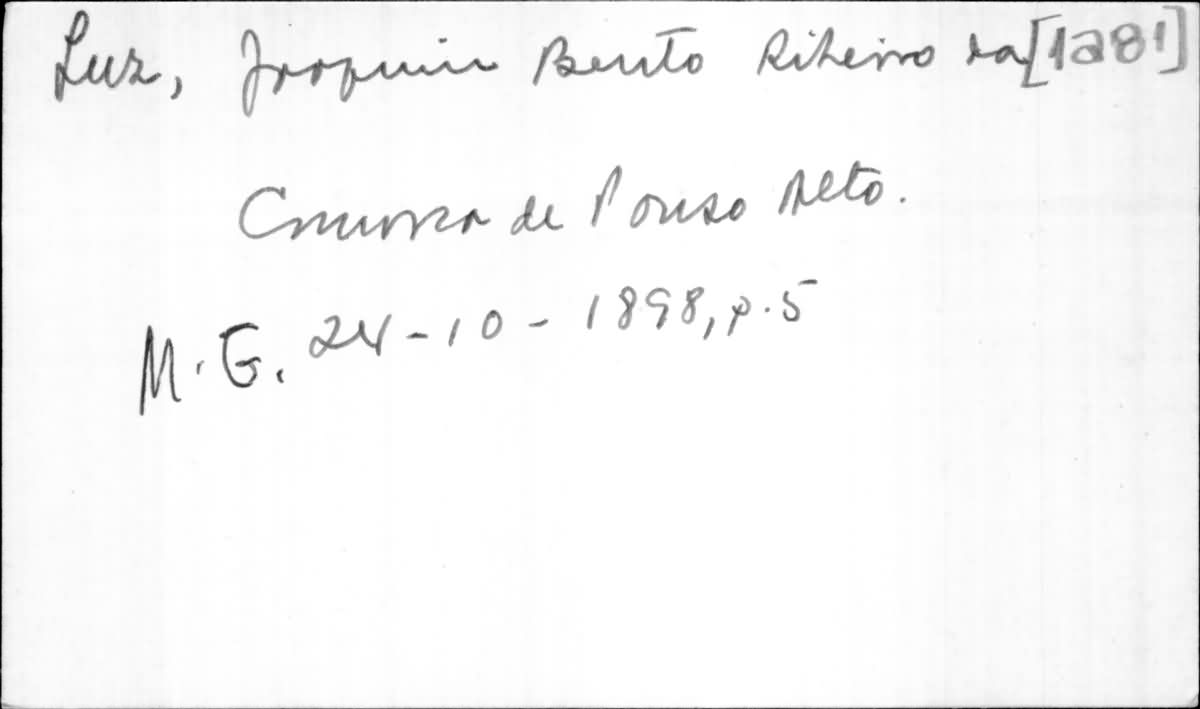 Luz, Joaquim Bento Ribeiro da [1881]
Comarca de Pouso Alto.
M.G. 24-10-1898, p.5